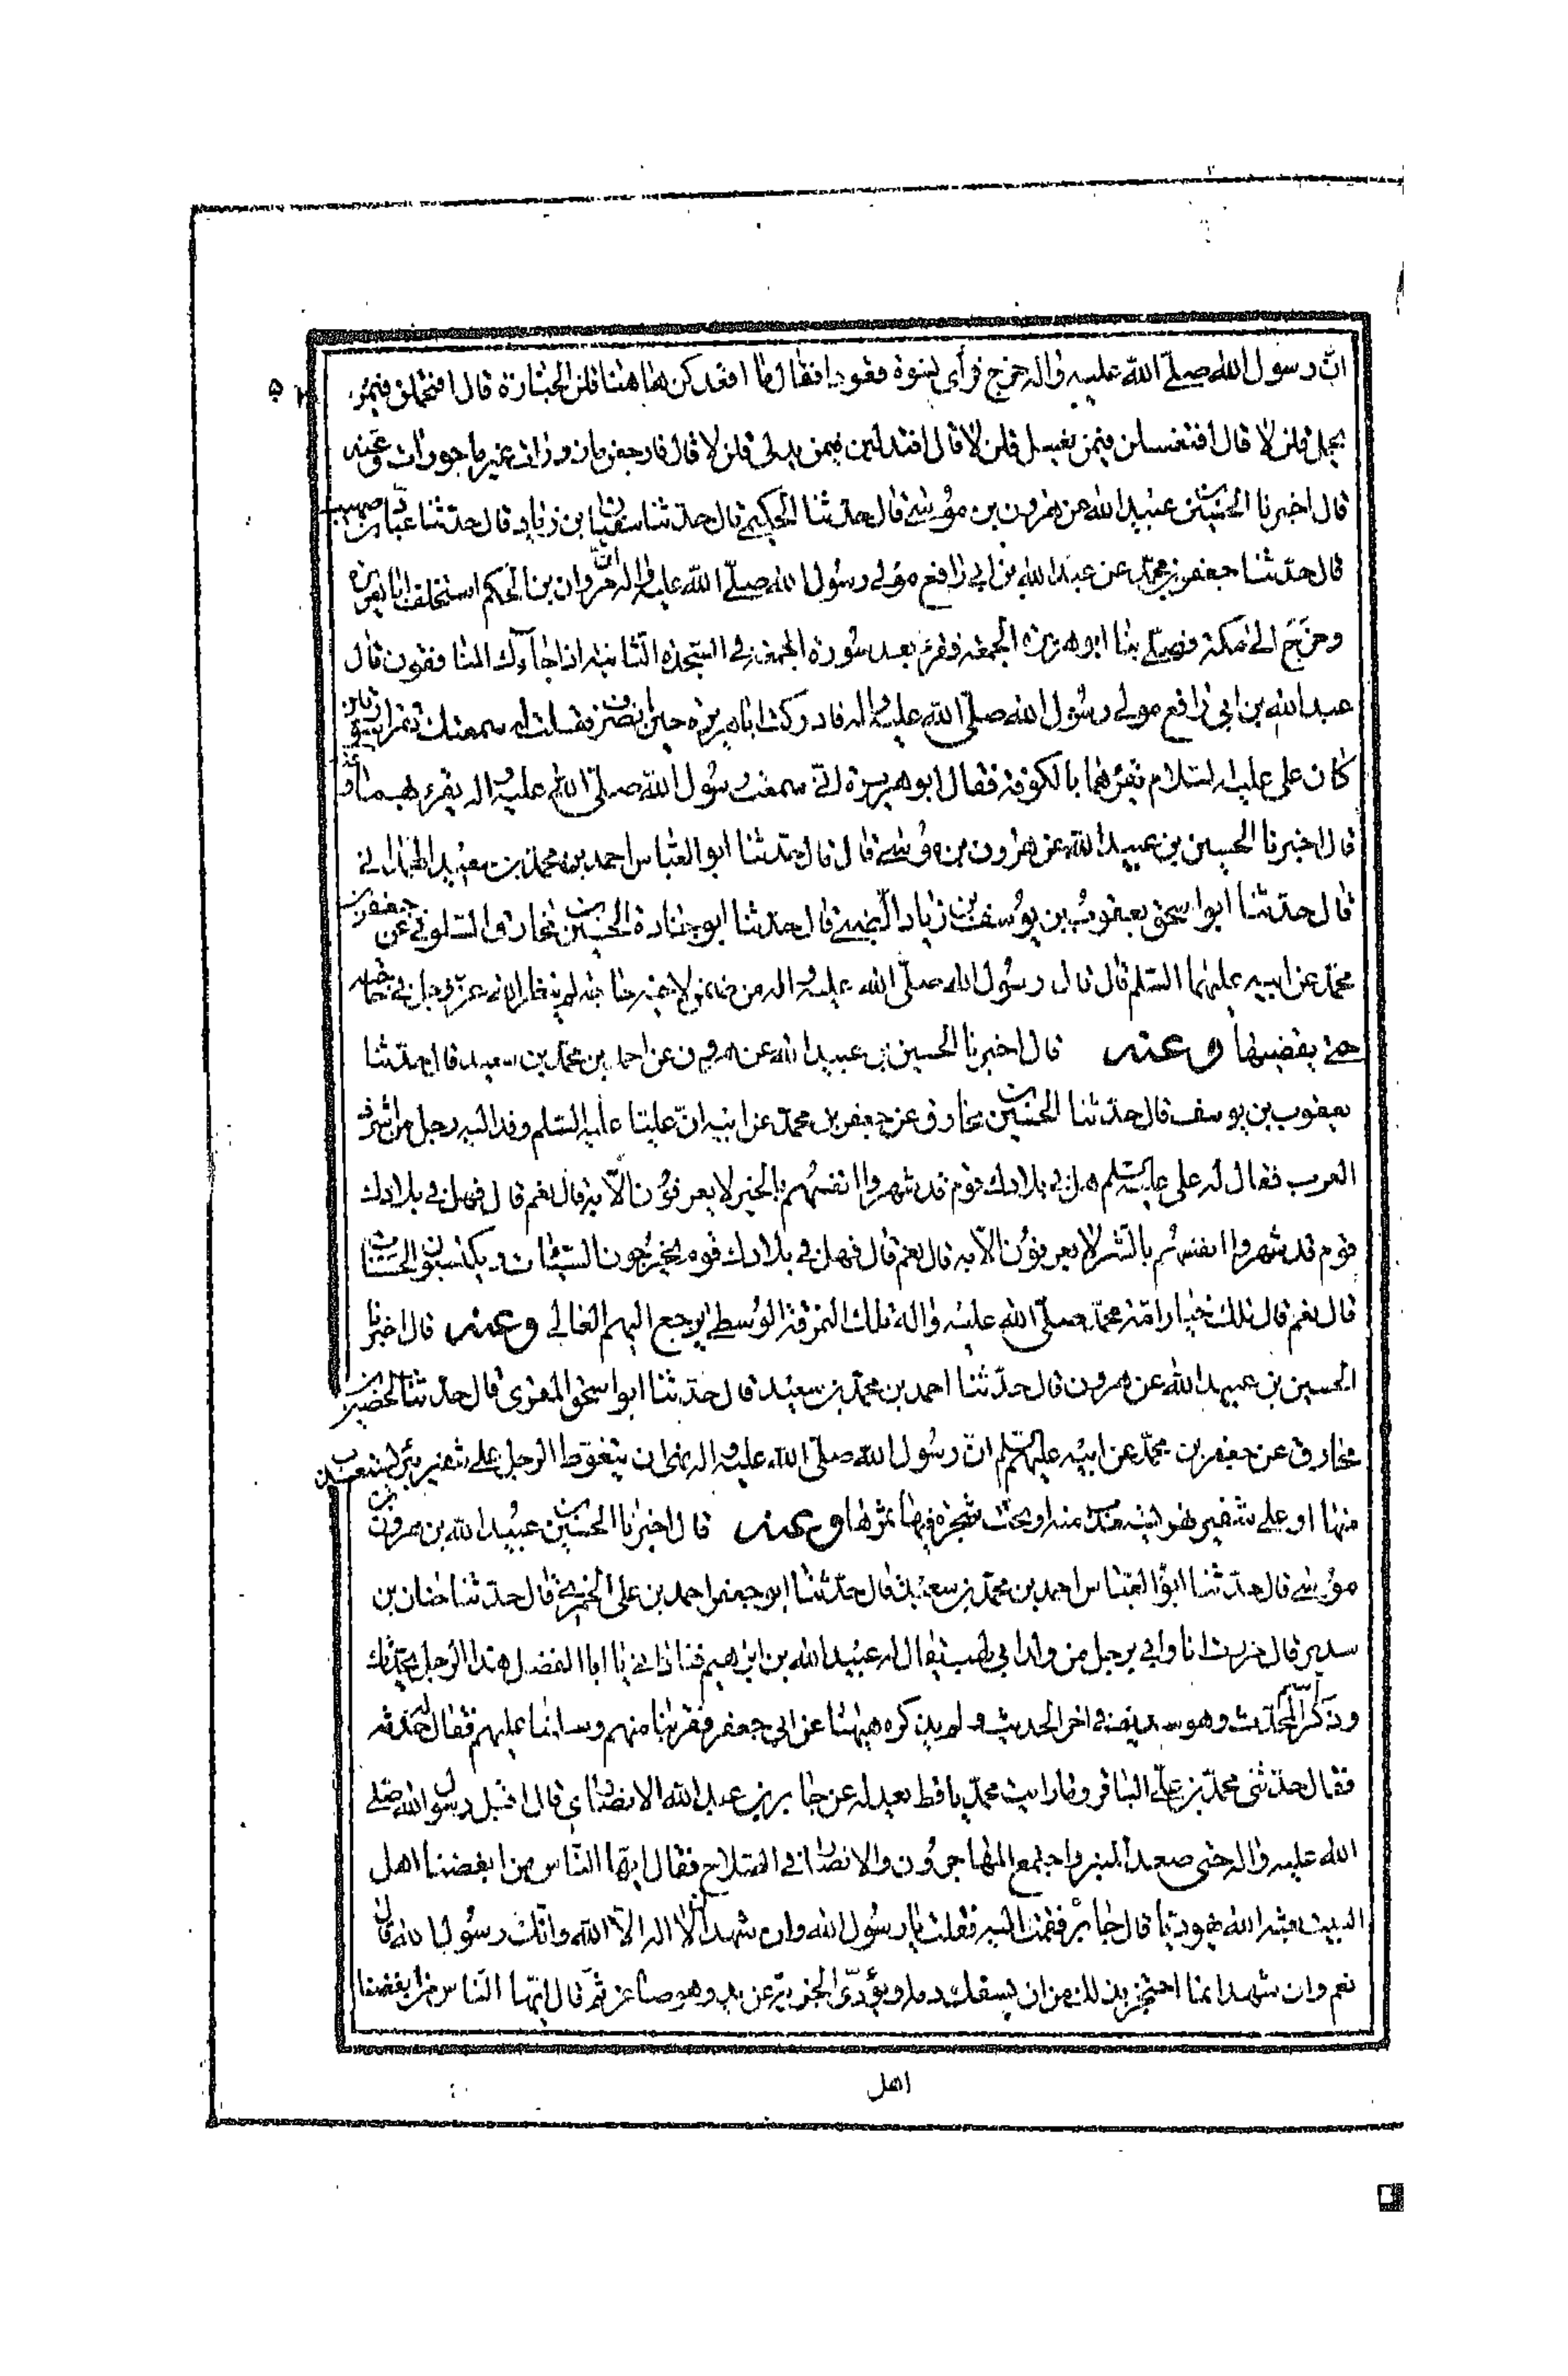 انّ رسول الله صلّى الله عليه واله خرج فرأى نسوة قعودا فقال ما اقعدكن ههنا قلن الجنازة قال افتحملن فيمن
يحمل قلن لا قال افتغسلن فيمن يغسل قلن لا قال افتدلين فيمن يدلى قلن لا قال فارجعن مازورات غير ماجورات وعنه
قال اخبرنا الحسين بن عبيد الله عن هرون بن موسى قال حدثنا الحكيمى قال حدثنا سفيان بن زياد قال حدثنا عباد بن صهيب
قال حدثنا جعفر بن محمد عن عبد الله بن ابى رافع مولى رسول الله صلّى الله عليه واله انّ مروان بن الحكم استخلف ابا هريرة
وخرج الى مكة فصلّى بنا ابو هريرة الجمعة فقرء بعد سورة الجمعة فى السجدة الثانية اذا جاءك المنافقون قال
عبد الله بن ابى رافع مولى رسول الله صلّى الله عليه واله فادركت ابا هريرة حين انصرف فقلت له سمعتك تقرء سورتين
كان على عليه السلام يقرئهما بالكوفة فقال ابو هريرة انّى سمعت رسول الله صلّى الله عليه واله يقرء بهما وعنه
قال اخبرنا الحسين بن عبيد الله عن هرون بن موسى قال قال حدثنا ابو العباس احمد بن محمد بن سعيد الهمدانى
قال حدثنا ابو اسحق يعقوب بن يوسف بن زياد الضبى قال حدثنا ابو جنادة الحسين بن مخارق السلولى عن جعفر بن
محمد عن ابيه عليهما السلم قال قال رسول الله صلّى الله عليه واله من ضمن لاخيه حاجة لم ينظر الله عز وجل فى حاجته
حتى يقضيها وعنه قال اخبرنا الحسين بن عبيد الله عن هرون عن احمد بن محمد بن سعيد قال حدثنا
يعقوب بن يوسف قال حدّثنا الحسين بن مخارق عن جعفر بن محمد عن ابيه انّ عليّا عليه السّلم وفد اليه رجل من اشراف
العرب فقال له على عليه السلم هل فى بلادك قوم قد شهروا انفسهم بالخير لا يعرفون الّا به قال نعم قال فهل فى بلادك
قوم قد شهروا انفسهم بالشر لا يعرفون الّا به قال نعم قال فهل فى بلادك قوم يجترحون السيئات ويكتسبون الحسنات
قال نعم قال تلك خيار امّة محمّد صلّى الله عليه واله تلك النمرقة الوسطى يرجع اليهم الغالى وعنه قال اخبرنا
الحسين بن عبيد الله عن هرون قال حدّثنا احمد بن محمّد بن سعيد قال حدّثنا ابو اسحق المقرى قال حدّثنا الحصين بن
مخارق عن جعفر بن محمّد عن ابيه عليهم السّلم انّ رسول الله صلّى الله عليه واله نهى ان يتغوط الرجل على شفير بئر يستعذب
منها او على شفير نهر يستعذب منه او تحت شجرة فيها ثمرها وعنه قال اخبرنا الحسين بن عبيد الله بن هرون بن
موسى قال حدّثنا ابو العبّاس احمد بن محمّد بن سعيد قال حدّثنا ابو جعفر احمد بن على الخمرى قال حدّثنا حنان بن
سدير قال مررت انا وابى برجل من ولد ابى لهب يقال له عبيد الله بن ابراهيم فنادانى يا ابا الفضل هذا الرجل يحدّثك
وذكر اسم المحدّث وهو سديف فى اخر الحديث ولم يذكره ههنا عن ابى جعفر فقربنا منهم وسلمنا عليهم فقال له حدّثه
فقال حدّثنى محمّد بن علىّ الباقر وما رايت محمّديّا قط يعدله عن جابر بن عبد الله الانصارى قال اقبل رسول الله صلّى
الله عليه واله حتى صعد المنبر واجتمع المهاجرون والانصار فى السلاح فقال ايّها النّاس من ابغضنا اهل
البيت بعثه الله يهوديّا قال جابر فقمت اليه فقلت يا رسول الله وان شهد ان لا اله الا الله وانّك رسول الله قال
نعم وان شهد انما احتجز بذلك من ان يسفك دمه ويؤدّى الجزية عن يد وهو صاغر ثمّ قال ايّها النّاس من ابغضنا
اهل